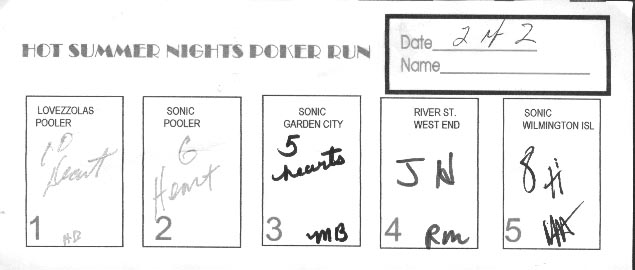 HOT SUMMER NIGHTS POKER RUN
Date 2 of 2
Name
LOVEZZOLAS
POOLER
10
Heart
1
HB
SONIC
POOLER
6
Heart
2
SONIC
GARDEN CITY
5
hearts
3
MB
RIVER ST.
WEST END
J H
4
Rm
SONIC
WILMINGTON ISL
8 H
5